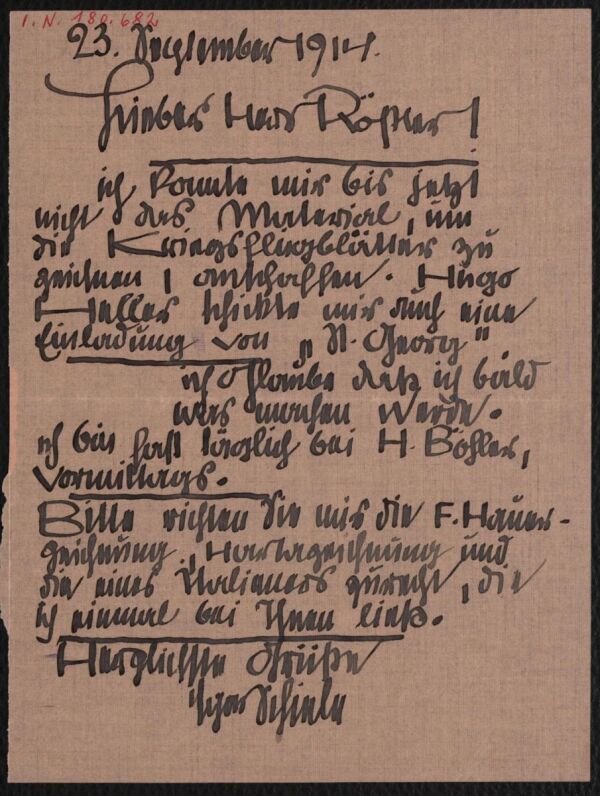 I.N. 180.682
23. September 1914.
Lieber Herr Rößler!
ich konnte mir bis jetzt
nicht das Material, um
die Kriegsflugblätter zu
zeichnen, anschaffen. Hugo
Heller schickte mir auch eine
Einladung von „St. Georg".
ich glaube daß ich bald
was machen werde.
ich bin fast täglich bei H. Böhler,
Vormittags.
Bitte richten Sie mir die F. Hauer-
zeichnung, zeichnung und
die eines Italieners zurecht, die
ich einmal bei Ihnen ließ.
Herzlichste Grüße
Egon Schiele